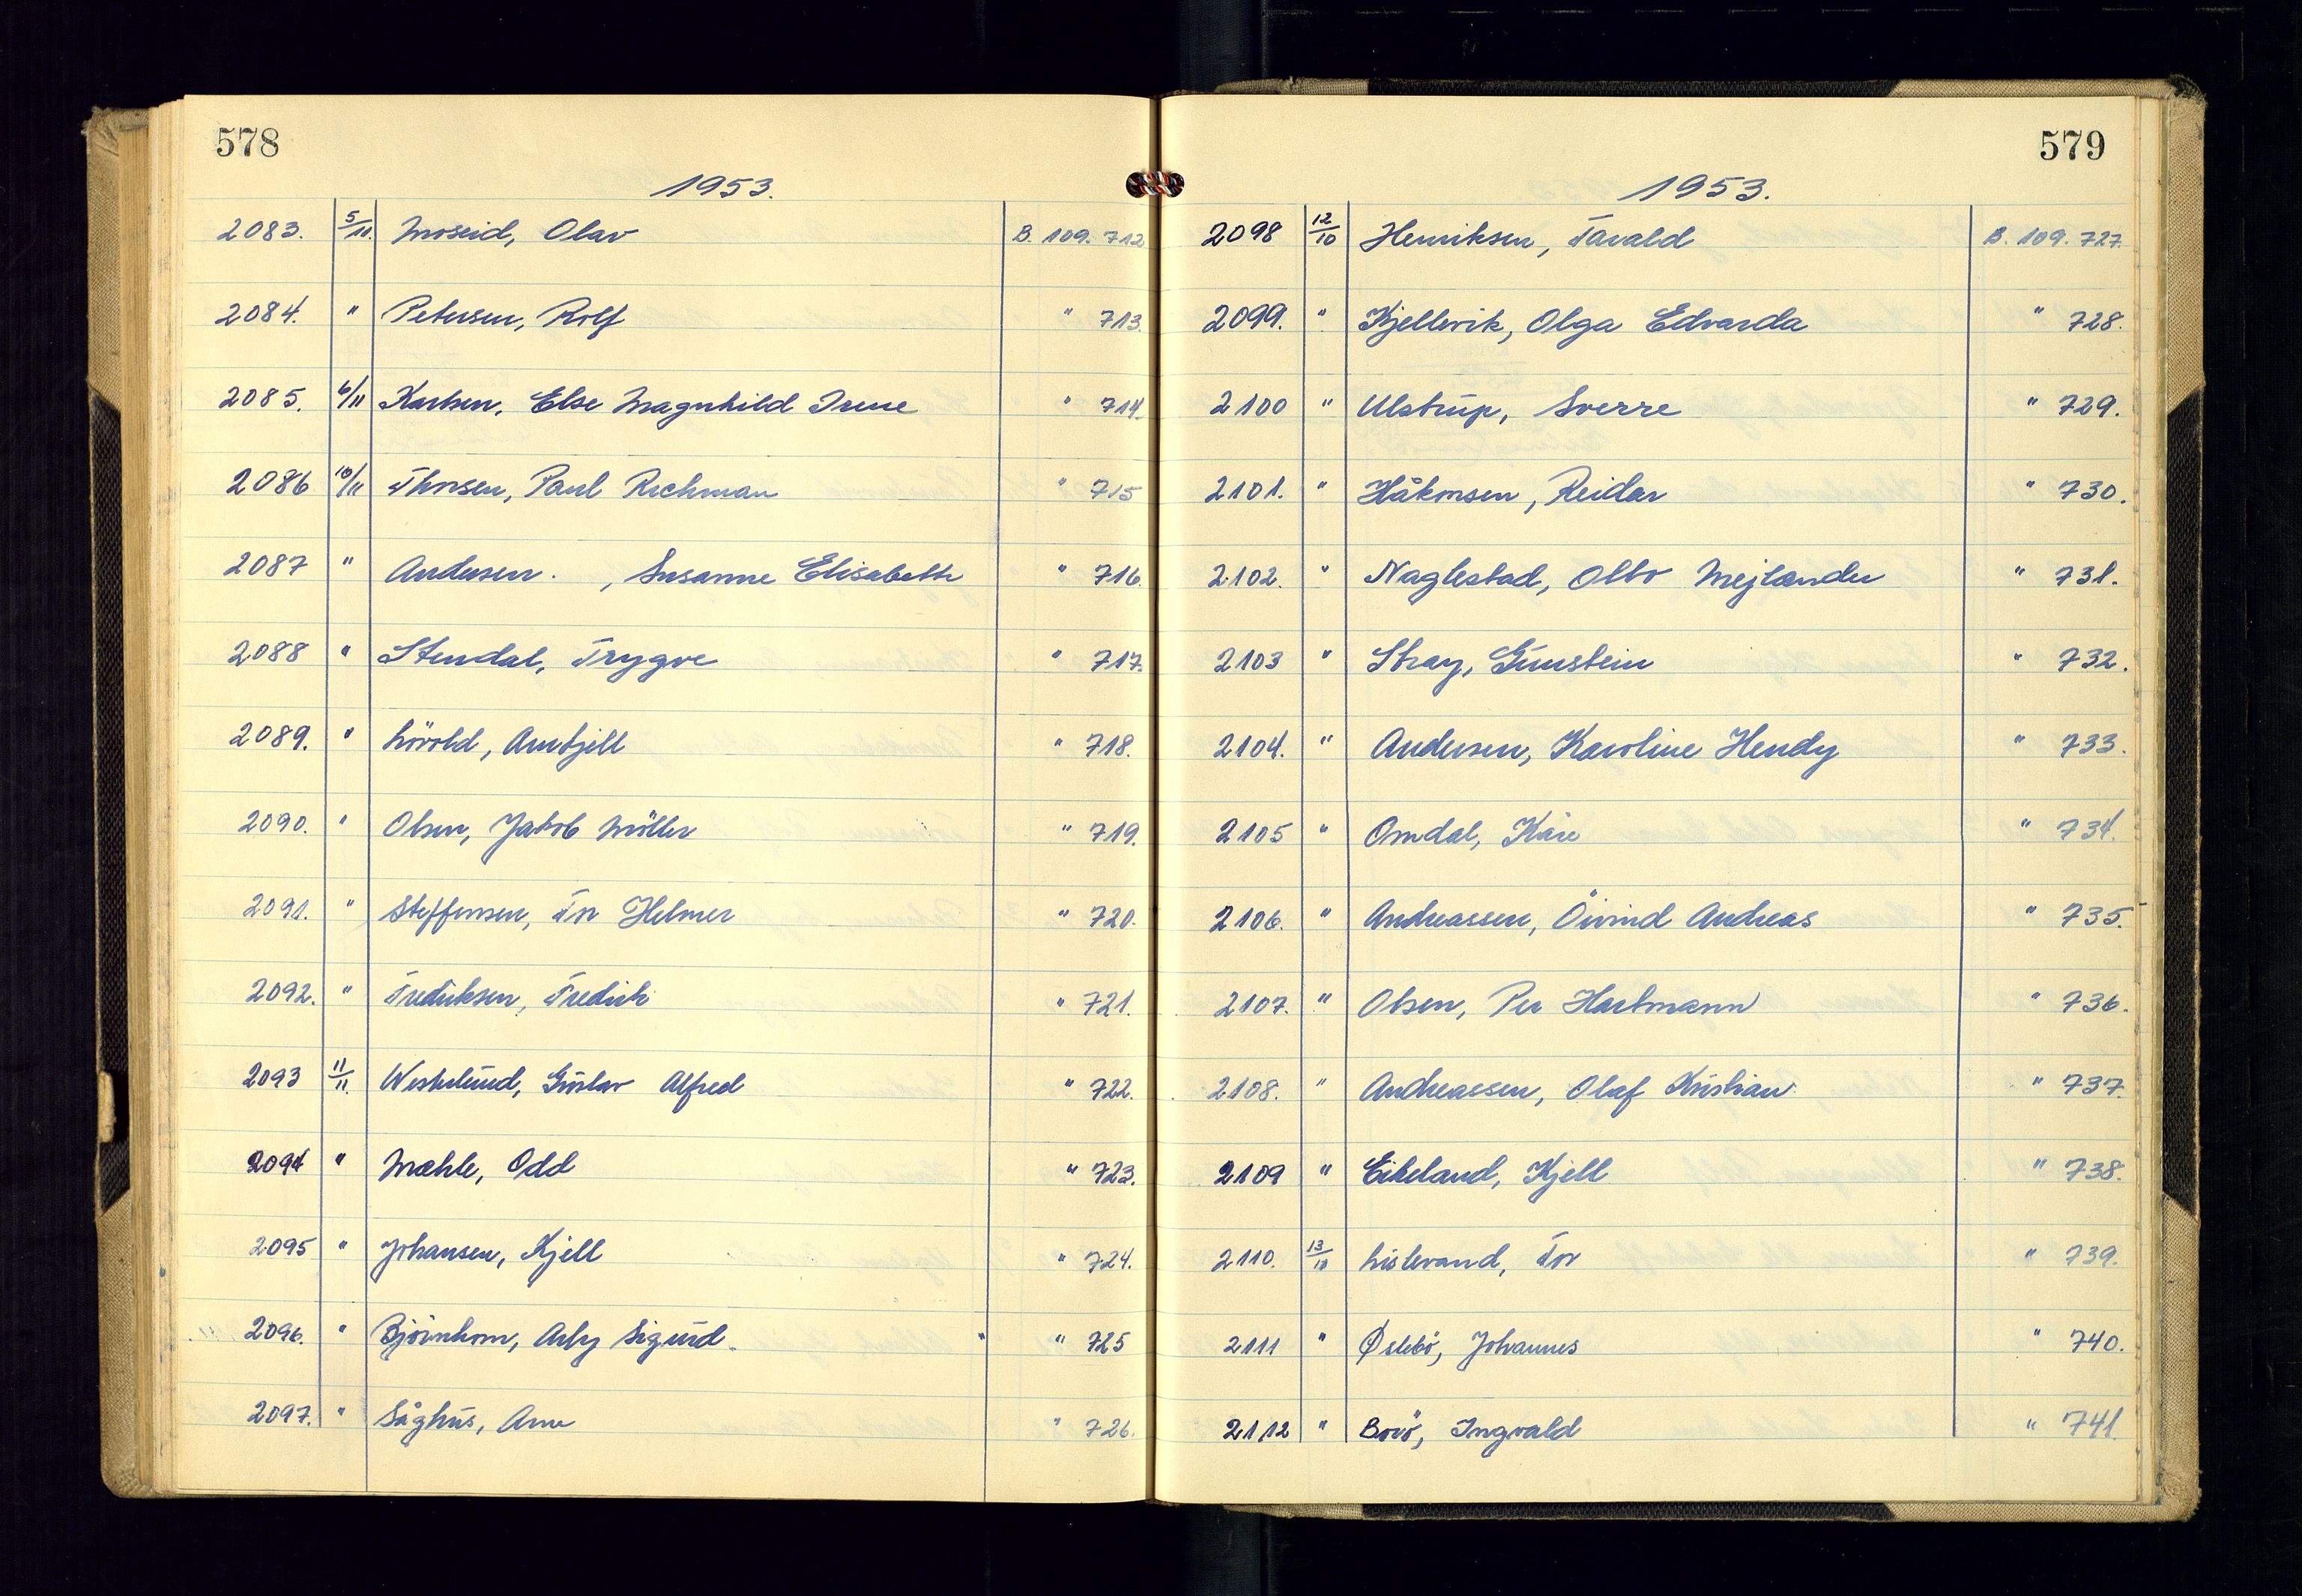 578
1953.
2083. 5/11. Moseid, Olav B. 109. 712
2084. " Petersen, Rolf " 713.
2085. 6/11 Karlsen, Else Magnhild Irene " 714.
2086 10/11 Thorsen, Paul Richman " 715
2087 " Andersen. , Susanne Elisabeth " 716.
2088 " Stendal, Trygve " 717.
2089. " Lövold, Arnkjell " 718.
2090. " Olsen, Jakob Möller " 719.
2091. " Steffensen, Tor Helmer " 720.
2092. " Fredriksen, Fredrik " 721.
2093 11/11. Westerlund, Gustav Alfred " 722.
2094 " Mæhle, Odd " 723.
2095 " Johansen, Kjell " 724.
2096. " Björnhom, Arly Sigurd. " " 725
2097. " Såghus, Arne " 726.
579
1953.
2098 12/10 Henriksen, Tarald B. 109. 727.
2099. " Kjellevik, Olga Edvarda " 728.
2100 " Ulstrup, Sverre " 729.
2101. " Håkonsen, Reidar " 730.
2102. " Naglestad, Otto Mejlænder " 731.
2103 " Stray, Gunstein " 732.
2104. " Andersen, Karoline Hendy " 733.
2105 " Omdal, Kåre " 734.
2106. " Andreassen, Öivind Andreas " 735.
2107. " Olsen, Per Hartmann " 736.
2108. " Andreassen, Olaf Kristian " 737.
2109 " Eikeland, Kjell " 738.
2110. 13/10 Lislevand, Tor " 739.
2111 " Øslebö, Johannes " 740.
2112 " Bovö, Ingvald " 741.